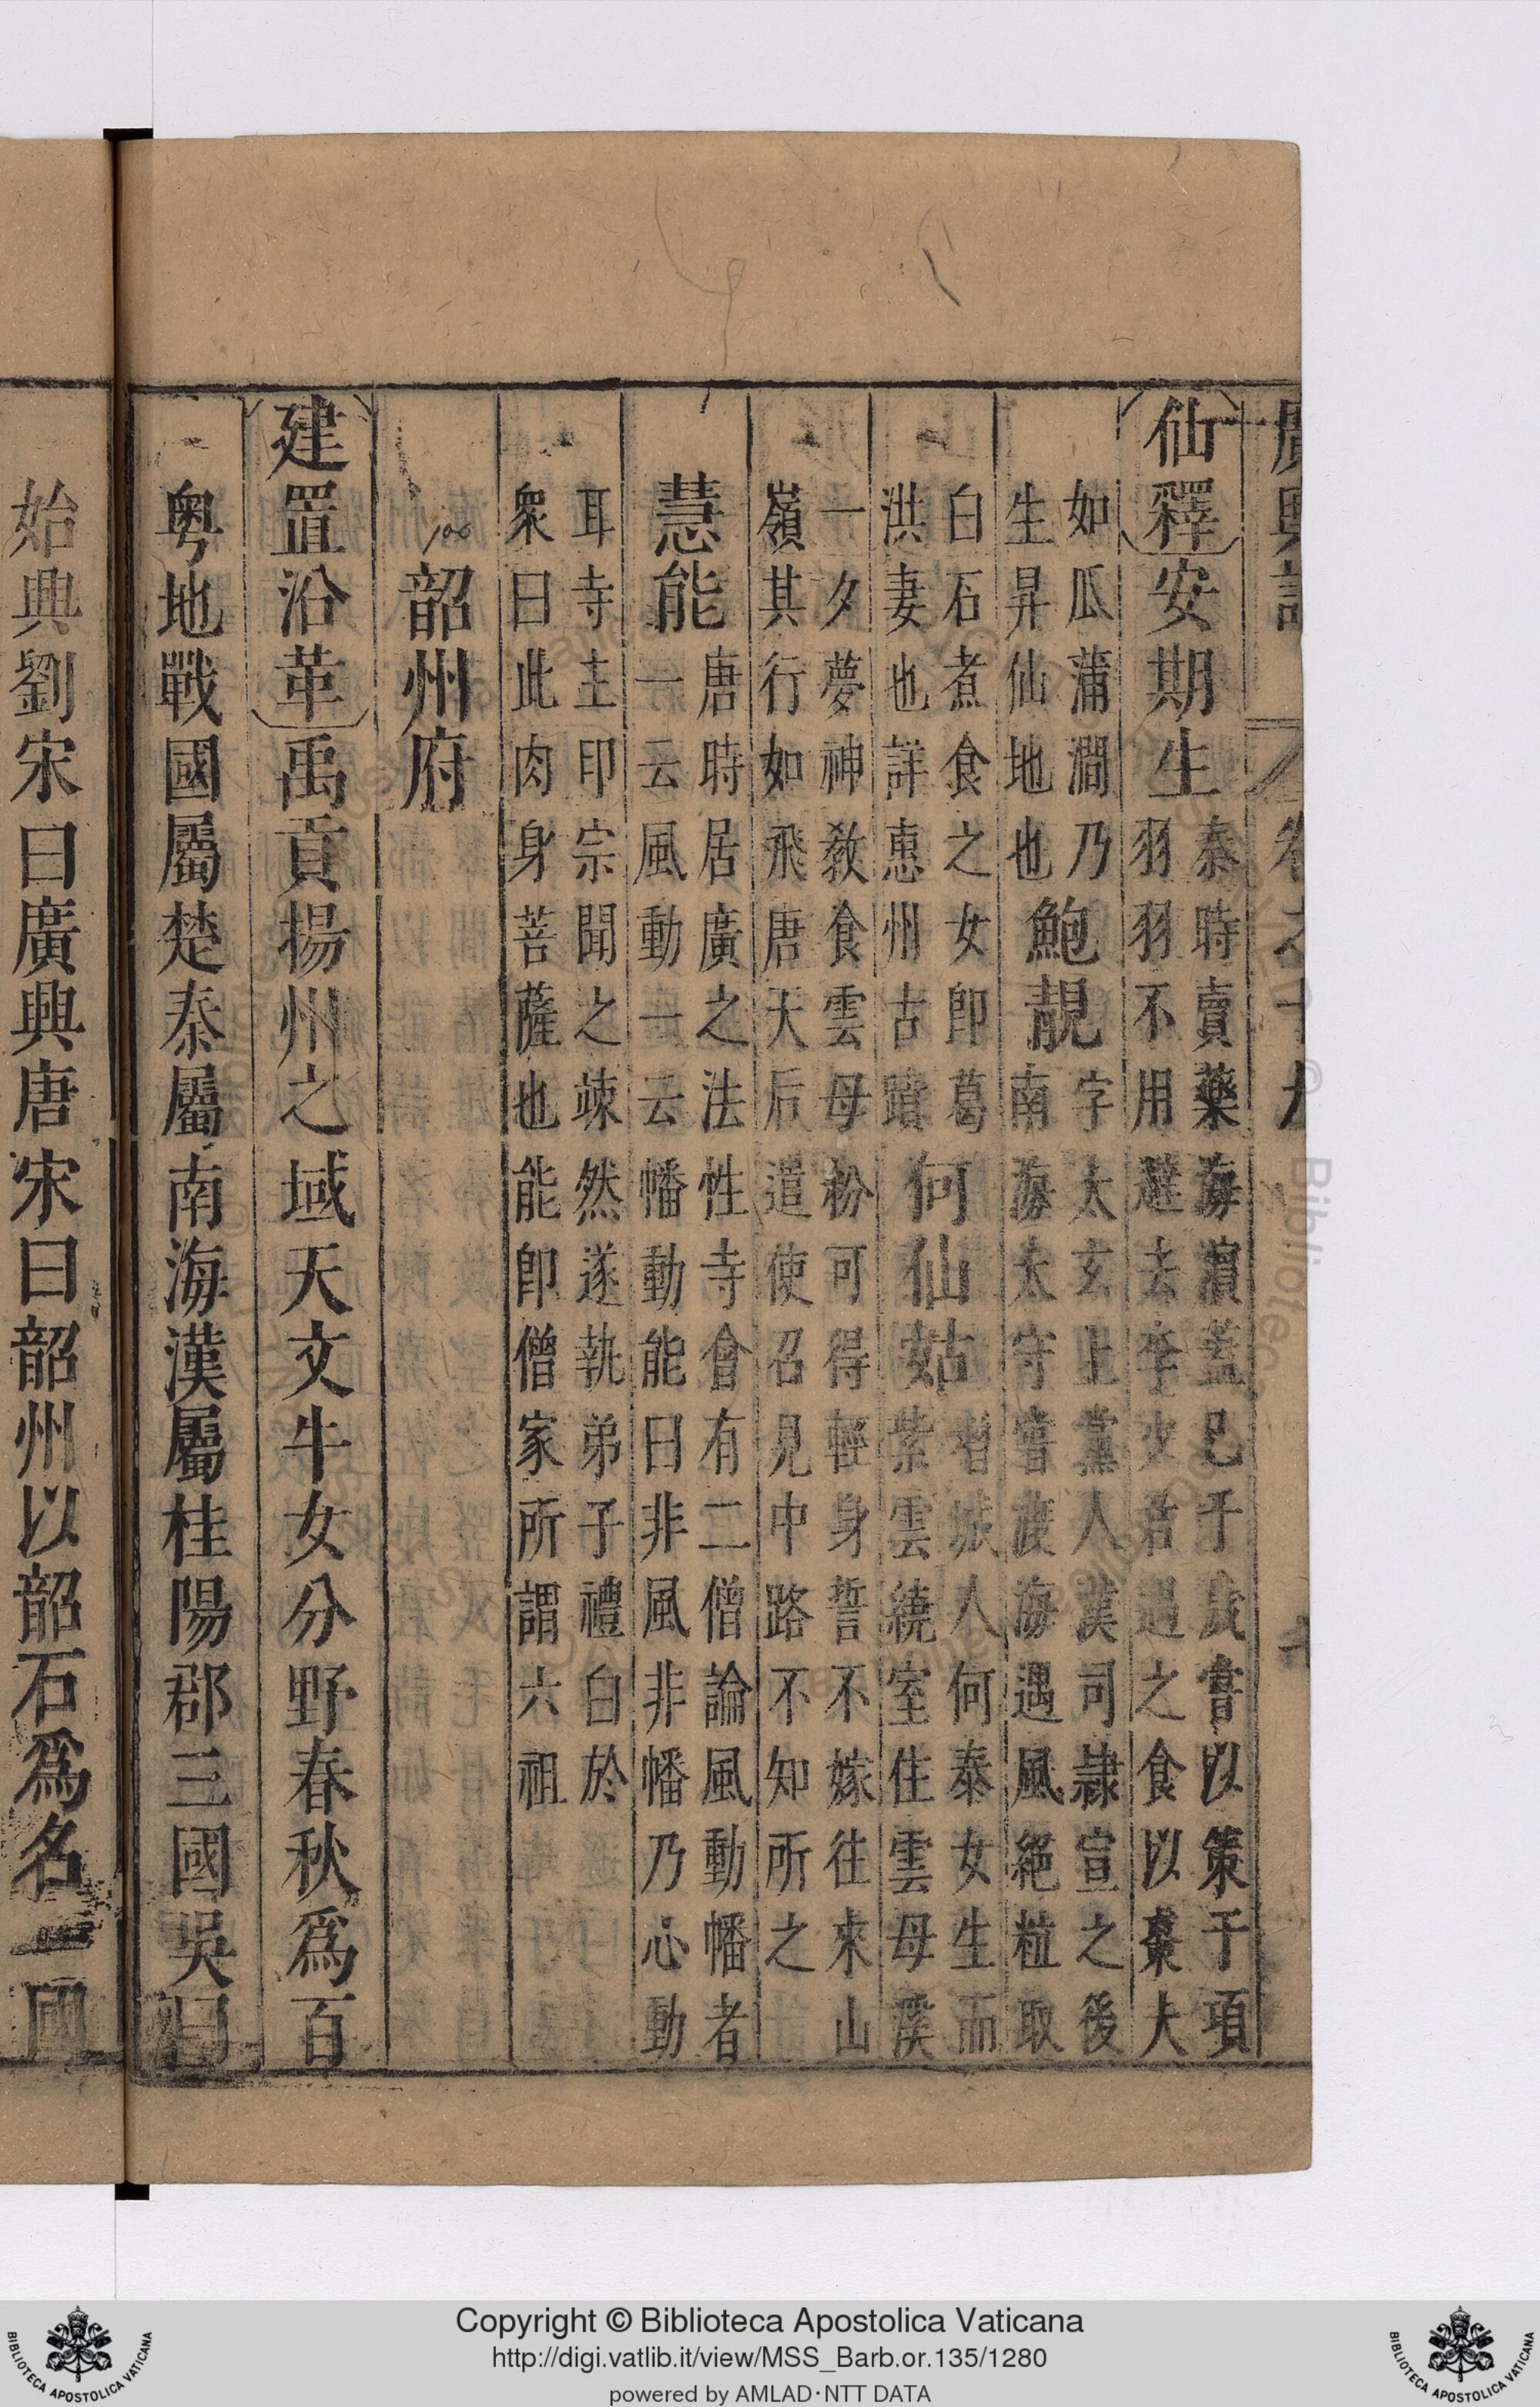 廣輿記 卷之十九
仙釋 安期生 秦時賣藥海濵蓋已千歲嘗以策于項
羽羽不用遂去李少君遇之食以棗大
如瓜蒲澗乃
生昇仙地也
鮑靚 字太玄上黨人漢司隷宣之後
南海太守嘗渡海遇風絶粒取
白石煮食之女卽葛
洪妻也詳惠州古蹟
何仙姑 增城人何泰女生而
紫雲繞室住雲母溪
一夕夢神敎食雲母粉可得輕身誓不嫁往來山
嶺其行如飛唐天后遣使召見中路不知所之
慧能 唐時居廣之法性寺會有二僧論風動幡者
一云風動一云幡動能曰非風非幡乃心動
耳寺主印宗聞之竦然遂執弟子禮白於
衆曰此肉身菩薩也能卽僧家所謂六祖
100
韶州府
建置沿革 禹貢揚州之域天文牛女分野春秋爲百
粤地戰國屬楚秦屬南海漢屬桂陽郡三國吳曰
始興劉宋曰廣興唐宋曰韶州以韶石爲名 國
Copyright © Biblioteca Apostolica Vaticana
http://digi.vatlib.it/view/MSS_Barb.or.135/1280
powered by AMLAD·NTT DATA
BIBLIOTECA APOSTOLICA VATICANA
BIBLIOTECA APOSTOLICA VATICANA